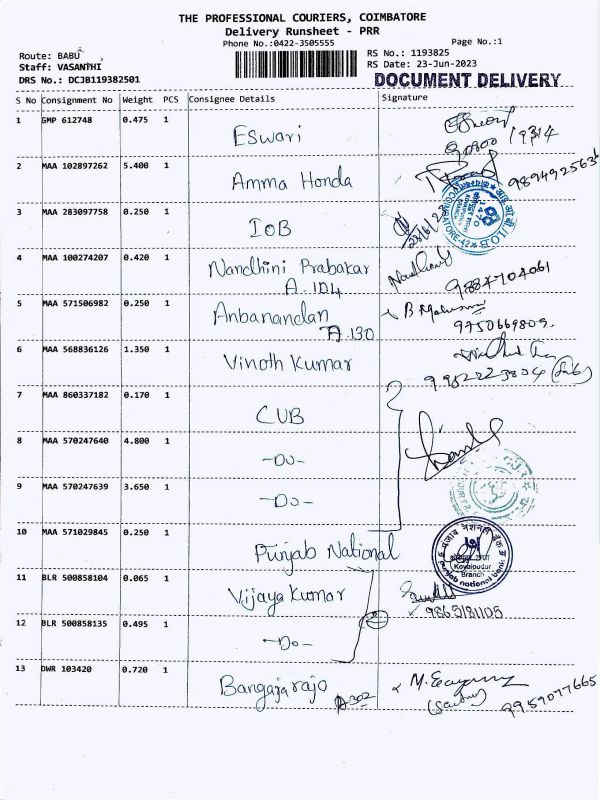 THE PROFESSIONAL COURIERS, COIMBATORE
Delivery Runsheet - PRR
Phone No.:0422-3505555
Page No.:1
Route: BABU
Staff: VASANTHI
DRS No.: DCJB119382501
RS No.: 1193825
RS Date: 23-Jun-2023
DOCUMENT DELIVERY
S No Consignment No Weight PCS Consignee Details Signature
1 GMP 612748 0.475 1 Eswari
2 MAA 102897262 5.400 1 Amma Honda
3 MAA 283097758 0.250 1 IOB 23/6/23
4 MAA 100274207 0.420 1 Nandhini Prabakar
A.104 9884704061
5 MAA 571506982 0.250 1 Anbanandan
A.130 9750669809.
6 MAA 568836126 1.350 1 Vinoth Kumar
7 MAA 860337182 0.170 1 CUB
8 MAA 570247640 4.800 1 -Do-
9 MAA 570247639 3.650 1 -Do-
10 MAA 571029845 0.250 1 Punjab National
Kovaipudur
Branch
punjab national bank
11 BLR 500858104 0.065 1 Vijaya Kumar
9865181105
12 BLR 500858135 0.495 1 -Do-
13 DWR 103420 0.720 1 Bangajarajo
A-302 9959077665